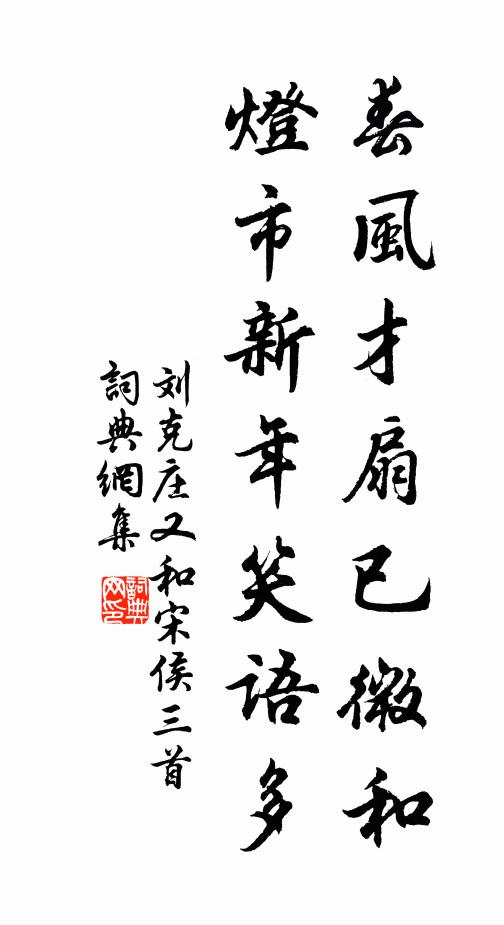 春風才扇已微和
燈市新年笑語多
刘克庄又和宋侯三首
詞典網集
詞典網印